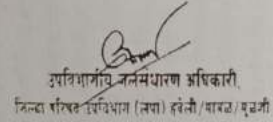 उपविभागीय जलसंधारण अधिकारी,
जिल्हा परिषद उपविभाग (लपा) हवेली/मावळ/मुळशी